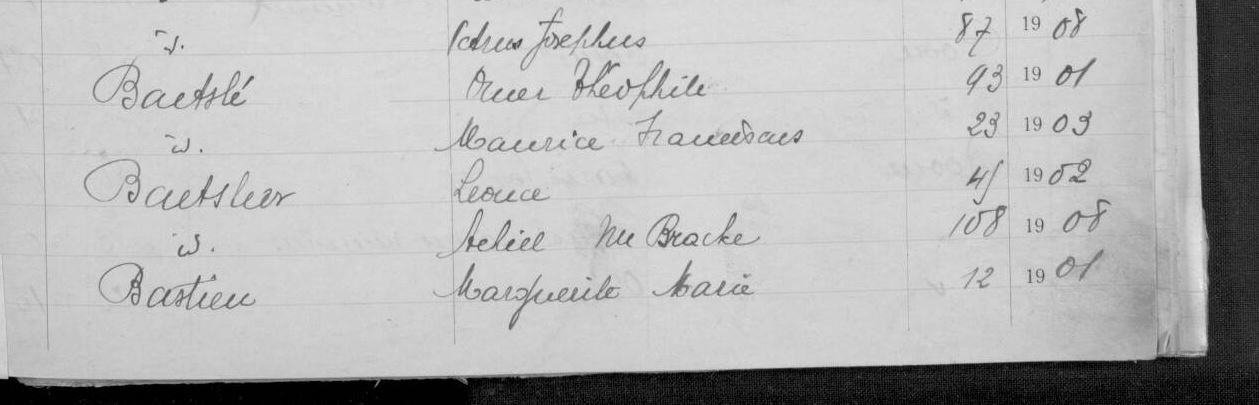 id. Petrus Josephus 87 1908
Baetslé Omer Théophile 93 1901
id. Maurice Franciscus 23 1903
Baetsleer Leonce 45 1902
id. Achiel De Bracke 108 1908
Bastien Marguerite Marie 12 1901